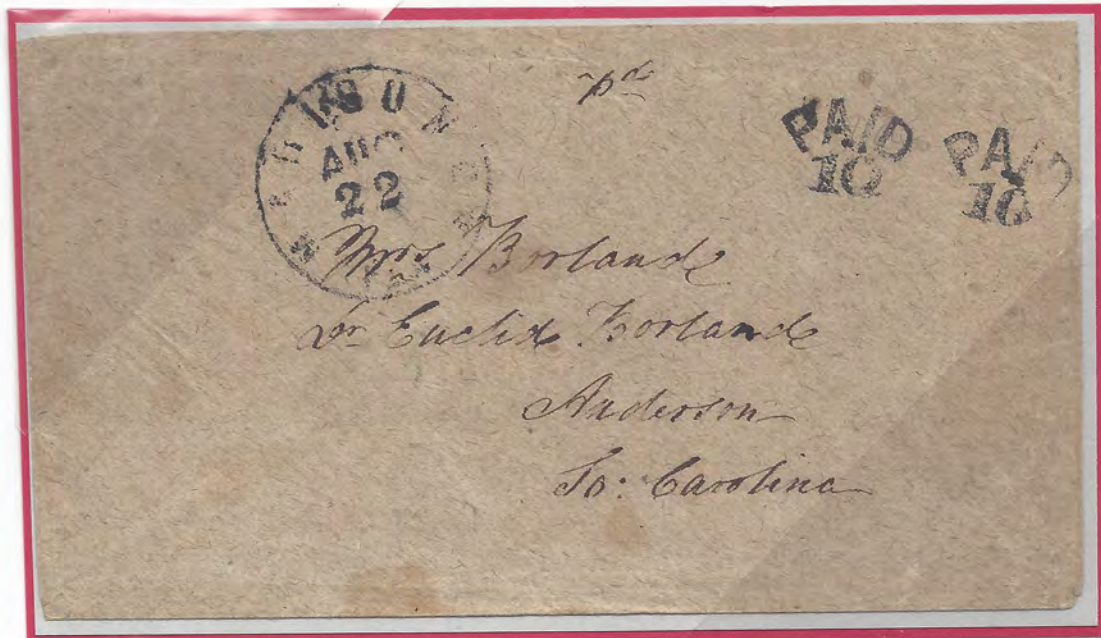 pd
MADISON
AUG
22
PAID
10
PAID
10
Mrs Borland
Dr Euclid Borland
Anderson
So: Carolina